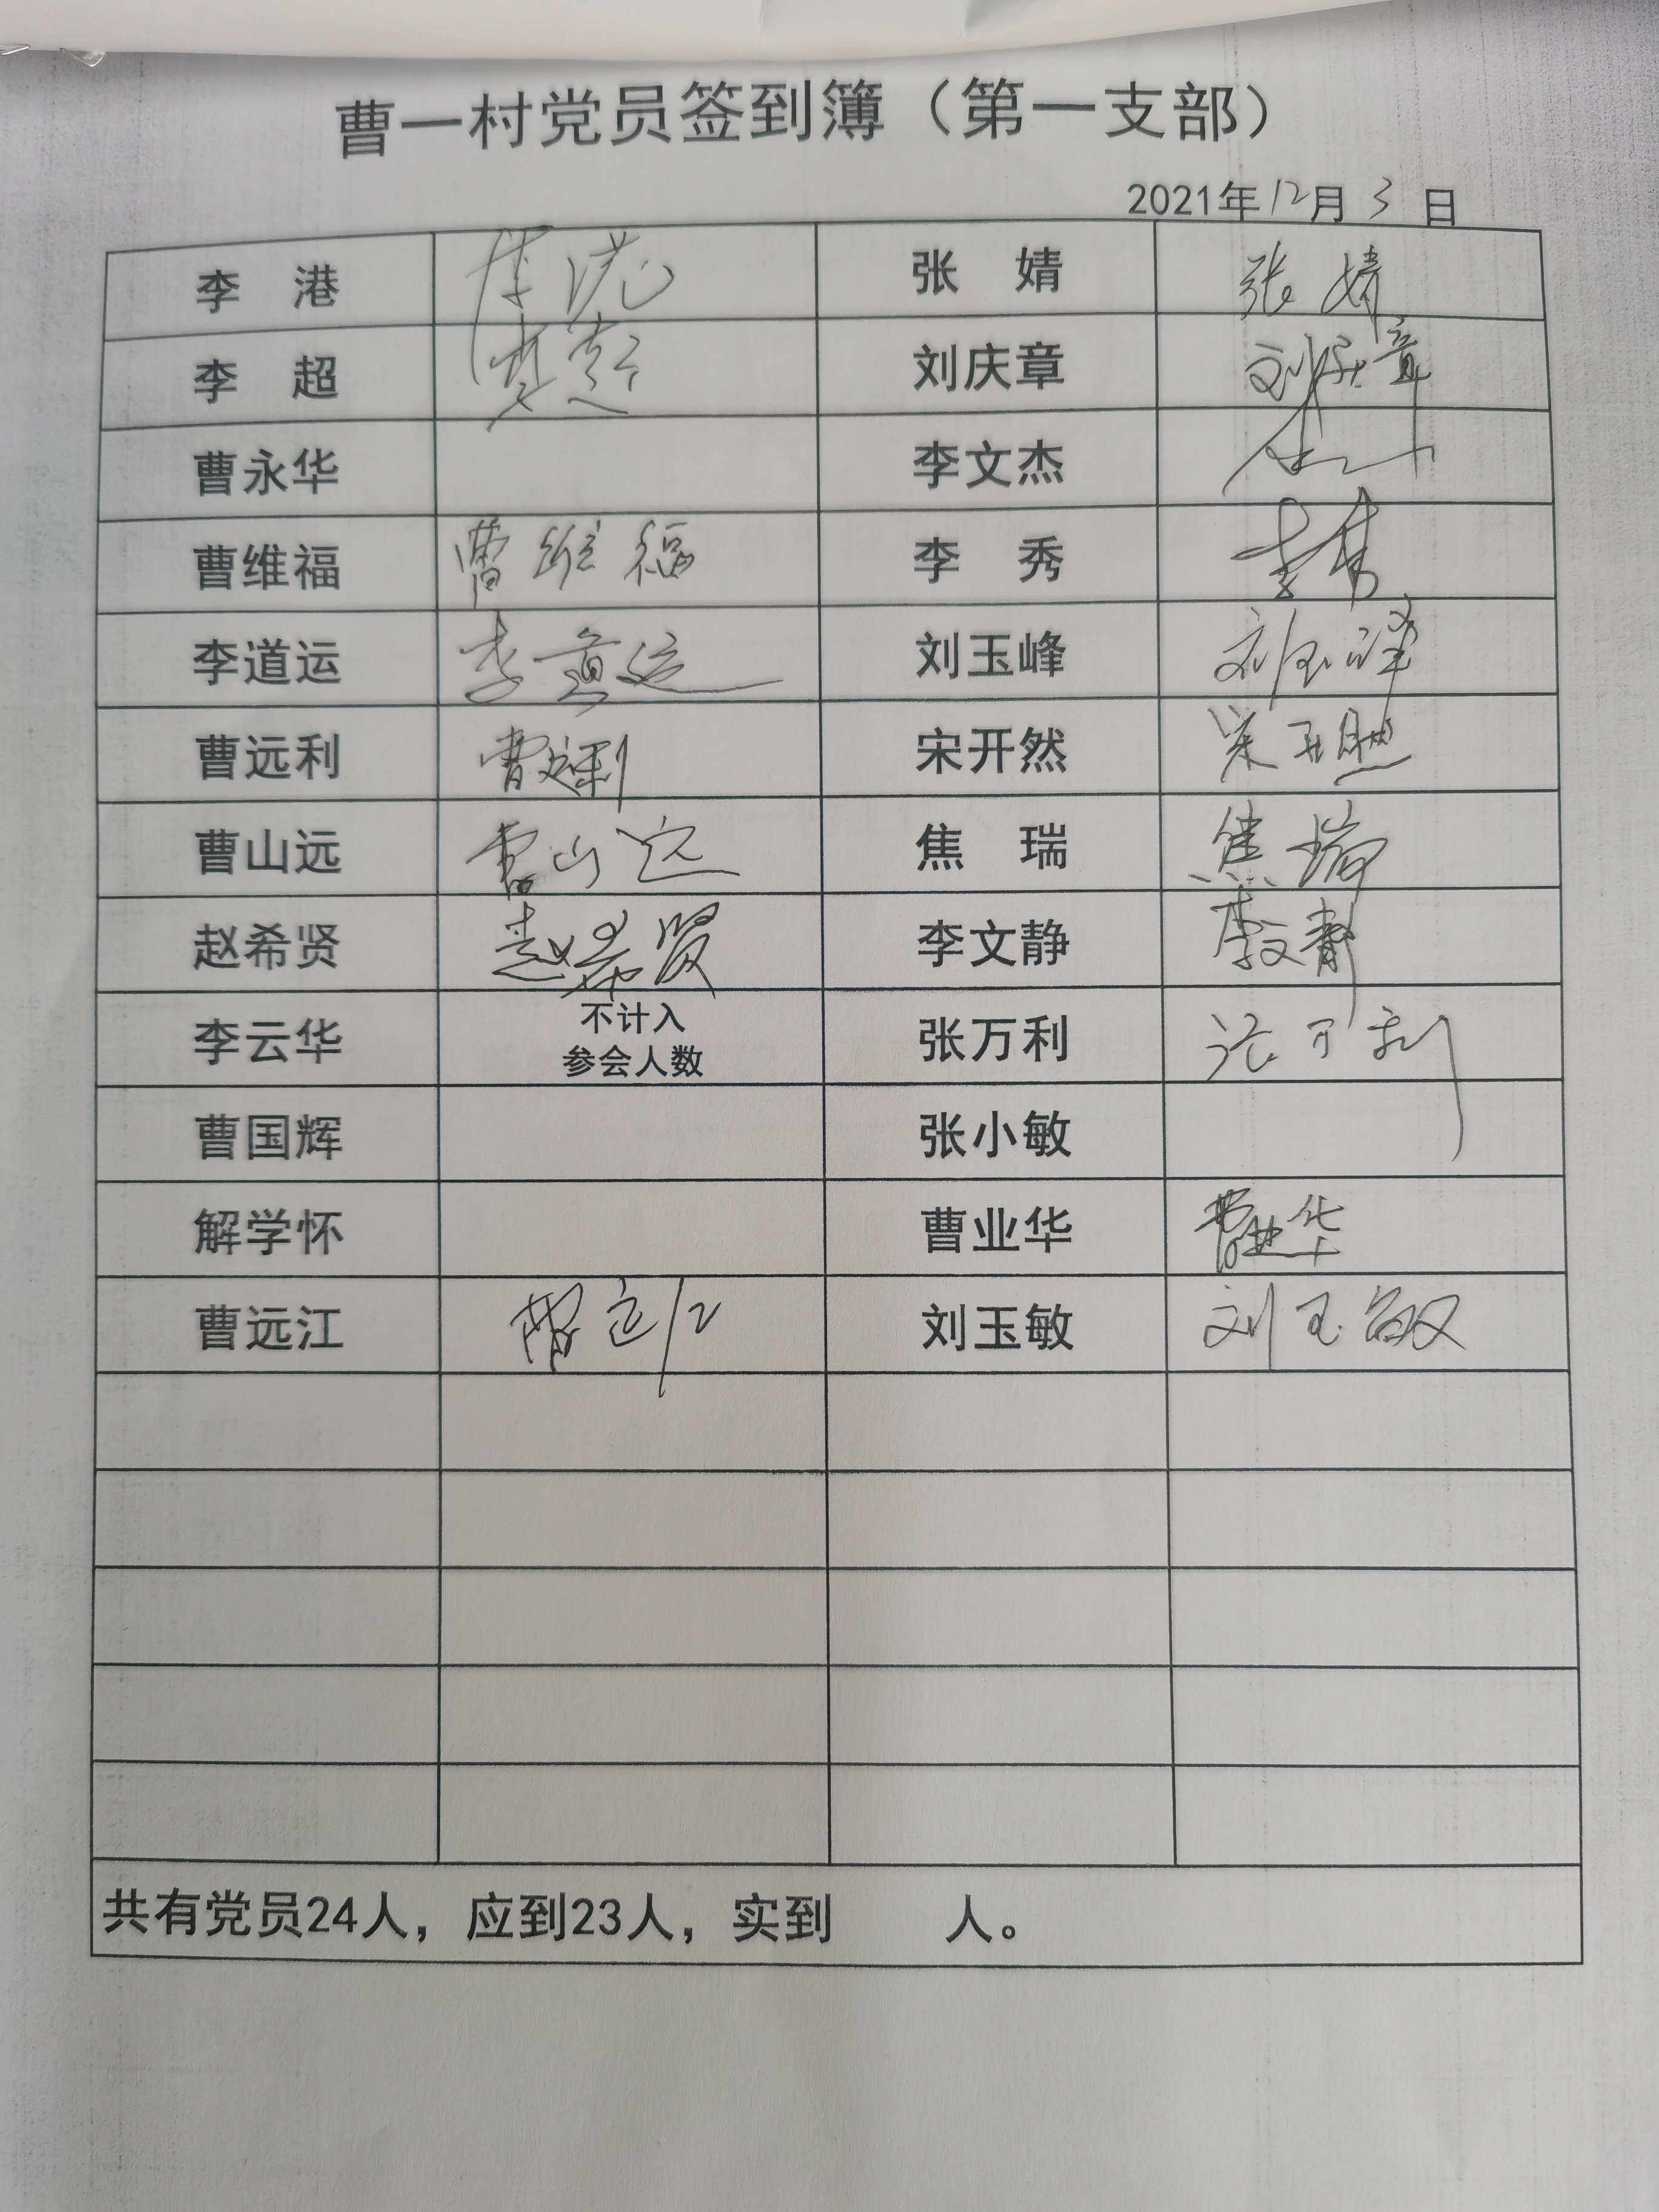 曹一村党员签到簿（第一支部）
2021年12月3日
李 港 李港 张 婧 张婧
李 超 李超 刘庆章 刘庆章
曹永华 李文杰
曹维福 曹维福 李 秀 李秀
李道运 李道运 刘玉峰 刘玉峰
曹远利 曹远利 宋开然 宋开然
曹山远 曹山远 焦 瑞 焦瑞
赵希贤 赵希贤 李文静 李文静
李云华 不计入 张万利 张万利
参会人数
曹国辉 张小敏
解学怀 曹业华 曹业华
曹远江 曹远江 刘玉敏 刘玉敏
共有党员24人，应到23人，实到 人。